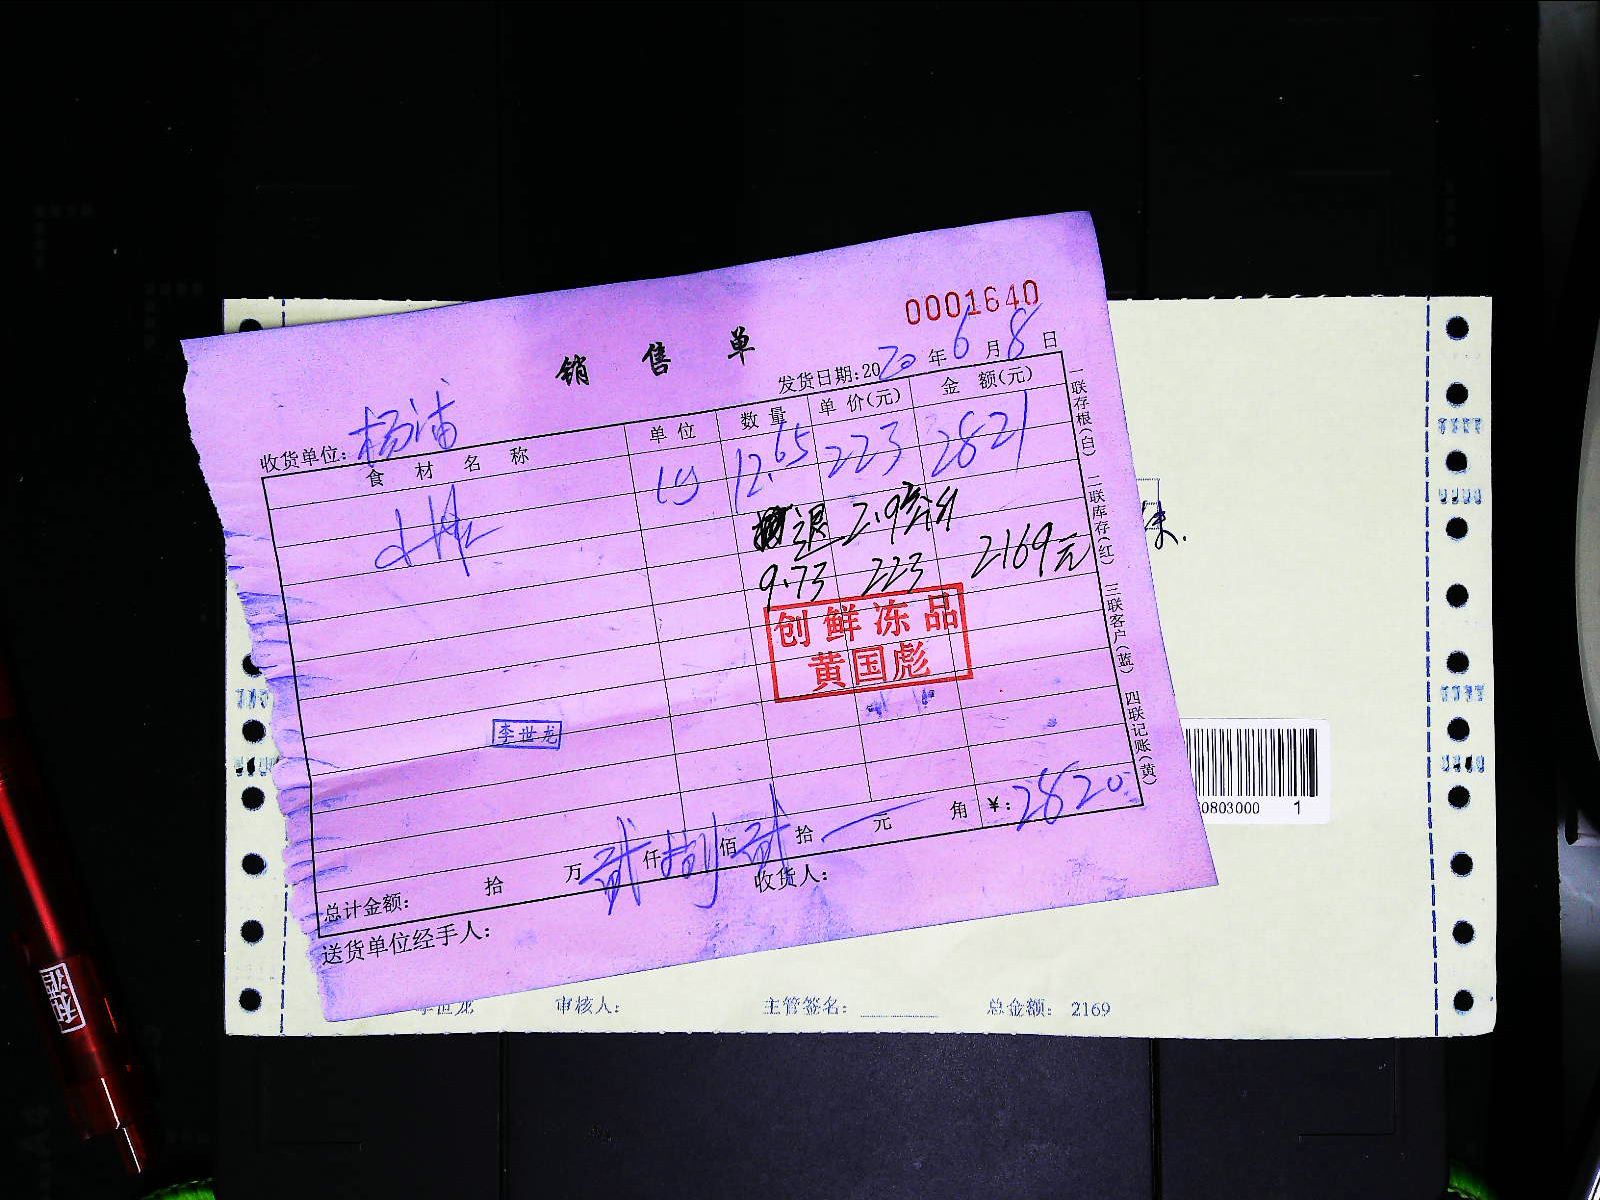 0001640
销售单
发货日期:2020年6月8日
收货单位:杨浦
食材名称 单位 数量 单价(元) 金额(元)
12.65 223 2821
退 2.9
9.73 223 2169元
创鲜冻品
黄国彪
李世龙
总计金额: 拾 万 贰 仟 捌 佰 贰 拾 元 角 ¥:2820
送货单位经手人: 收货人:
一联存根(白) 二联库存(红) 三联客户(蓝) 四联记账(黄)
0803000 1
李世龙 审核人: 主管签名: 总金额: 2169